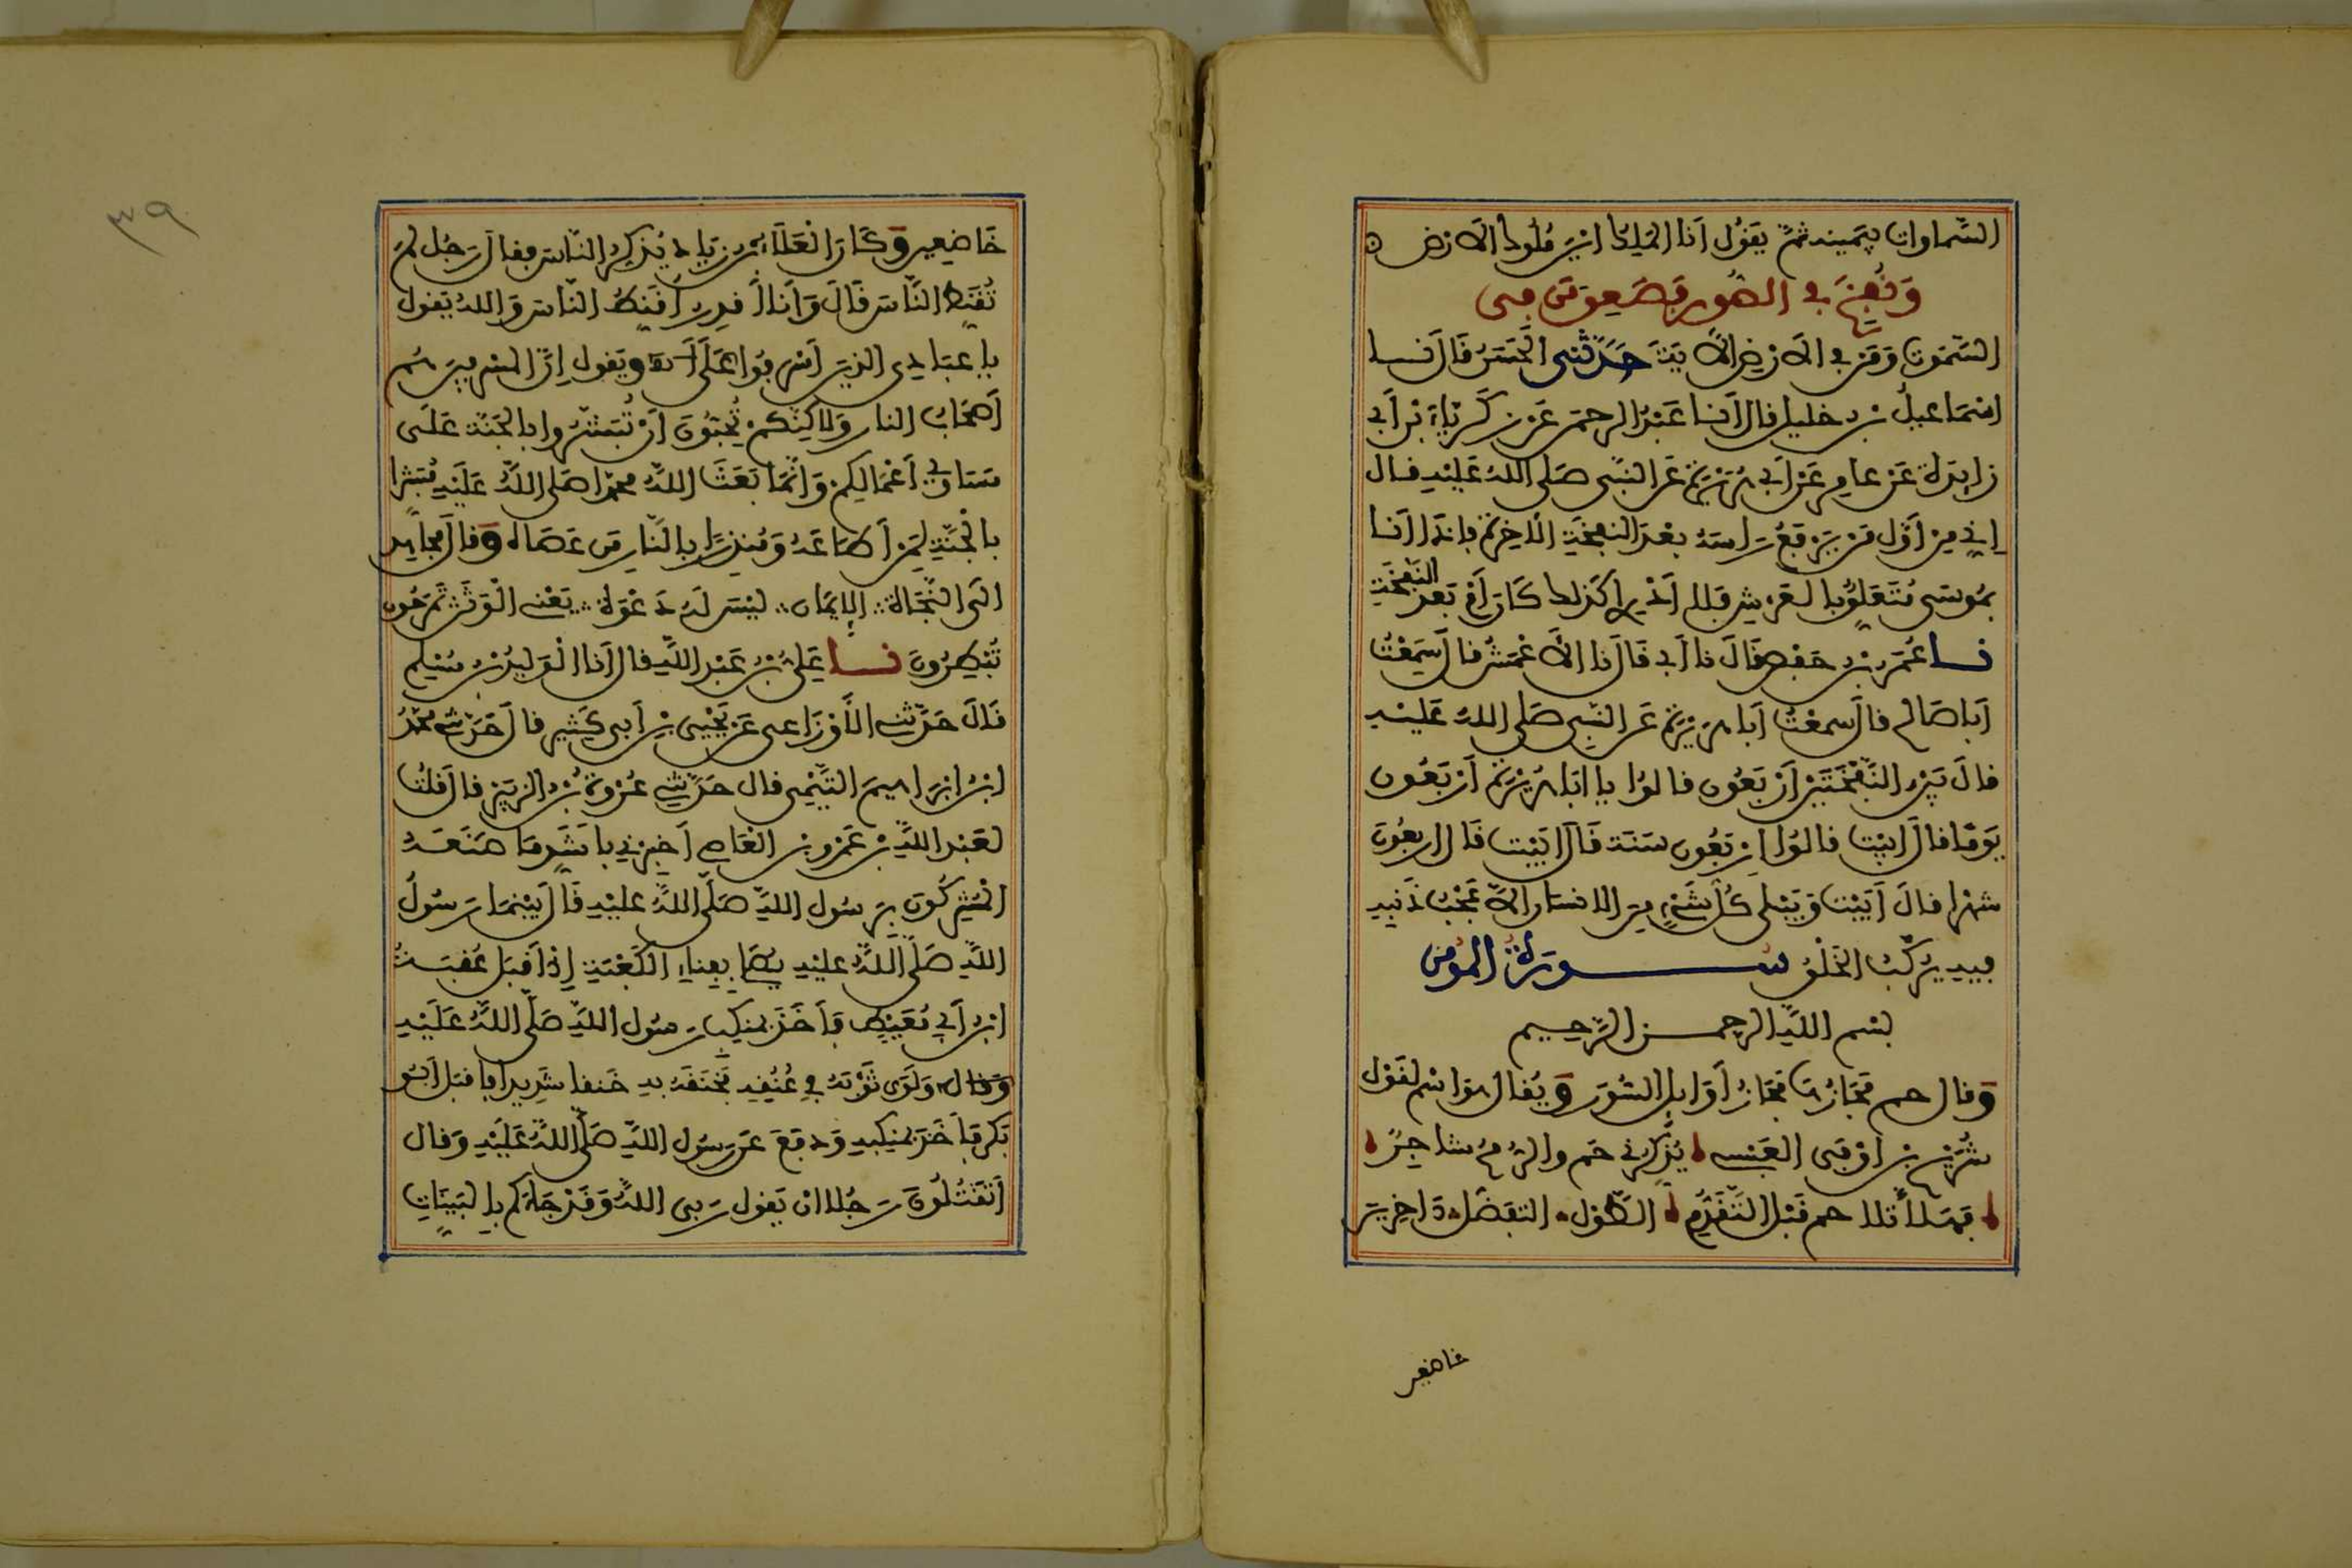 السَّماوات بيَمينه ثمَّ يقول أنا الملك اين ملوك الارض
وَنُفِخَ في الصُّور فصَعِق من في
السَّمَوت ومَن في الارض الَّا مَن حَدَّثني الحسَن قال نا
اسْمَاعيل بن خليل قال أنا عَبْد الرحيم عَن زكرياء بن أبي
زايدة عَن عامر عن أبي هُرَيْرة عَن النبي صَلى الله عَليْه قال
اني من أوَّل من يَرفَع راسه بعْدَ النفخَة الاخِرة فإذا أنا
بمُوسى مُتَعَلق بالعَرش فلا أدْري أكذلك كَان أم بَعد النفخَة
نا عُمَر بن حَفص قَالَ نا أبي قَالَ نا الأَعْمَش قال سَمِعْت
أبا صالح قال سمعْتُ أبا هُرَيْرة عَن النَّبي صَلى الله عَليْه
قالَ بَيْن النفْخَتَيْن أرْبَعُون قالوا يا ابا هُرَيْرة أرْبَعُون
يَوْمًا قال أبيْت قالوا أرْبعُون سَنَة قَالَ أبَيْت قَال اربعُون
شهْرا قالَ أبَيْت وَيَبْلى كُل شَيْء من الانسَان الَّا عَجْبَ ذَنَبه
فيه يُرَكَّبُ الخَلْق سُورة المؤمن
بسْم اللَّه الرحمن الرَّحيم
وَقال حم مَجَازُهَا مَجَازُ أوَايل السُّوَر وَيُقال هو اسْم لقَوْل
شُرَيْح بن أوْفى العَبْسي يُذَكِّرني حم والرُّمْح شاجِرٌ
فهَلَّا تَلا حم قَبْل التَّقَدُّم الطَّوْل التفضّل دَاخِرين
خاضعين
٣٩
خَاضِعين وَكَانَ الْعَلَاء بْن زيَاد يُذكِّر النَّاسَ فقال رَجُل لمَ
تُقَنِّط النَّاسَ قَالَ وَأنَا أقْدِر أقَنِّطُ النَّاسَ وَالله يَقول
يا عبَادي الذين أسْرَفوا عَلَى الاية ويَقول إنَّ المسرفين هُم
أصْحَاب النار وَلَاكِنَّكم تُحِبُّونَ أنْ تُبَشّروا بالجَنَّة عَلَى
مَسَاوي أعْمَالِكم وَانَّمَا بَعَثَ اللَّه محمدا صَلى اللَّه عَليْه مُبَشرا
بالجنَّة لِمَن أطَاعَهُ وَمُنذِرًا بالنَّار مَن عَصَاهُ وَقال مُجاهد
الى النَّجَاة الإيمَان ليْسَ لَه دَعْوَة يَعْني الْوَثَن تَمْرَحُون
تَبْطَرُونَ نا عَلِيُّ بْن عَبْد اللَّه قال نا الْوَليدُ بْن مُسْلِم
قَالَ حَدَّثني الأوْزَاعي عَن يَحْيى بْن أبي كَثِير قال حَدَّثني محمَّدُ
ابْن ابْرَاهِيمَ التَّيْمِي قال حَدَّثني عُرْوَة بْن الزبَيْر قال قلت
لعَبْد اللَّه بْن عَمْرو بْن الْعَاصِي أخبرْني بأشَد مَا صَنَعَهُ
المُشْركُون برَسُول اللَّه صَلَّى اللَّه عليْه قَالَ بَيْنَمَا رَسُولُ
اللَّه صَلَّى اللَّه عليْه يُصَلي بفِناء الكَعْبَة إذْ أقبَل عُقبَةُ
ابْن أبي مُعَيْط فأخَذَ بمنكِب رَسُول اللَّه صَلَّى اللَّه عَلَيْه
وَقال وَلَوَى ثَوْبَهُ في عُنُقِه فَخَنَقَهُ به خَنقا شَدِيدا فأقبَل أبُو
بَكر فأخَذَ بمَنكِبه وَدفعَ عَن رَسُول اللَّه صَلَّى اللَّه عَلَيْه وَقال
أتَقْتُلُونَ رَجُلا ان يَقول رَبي اللَّه وَقَد جَاءَكم بالبَيّنَات